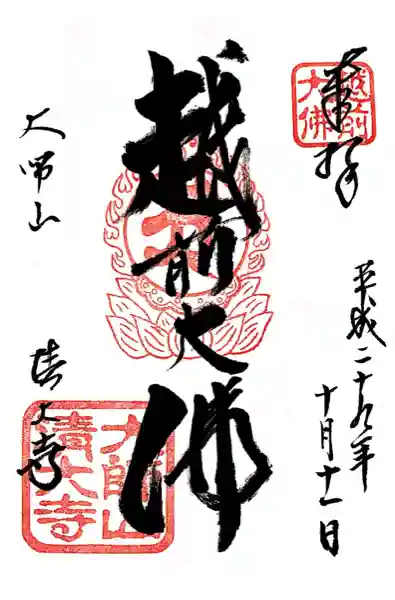 奉拝
越前
大佛
平成二十九年
十月十一日
越前大佛
大師山
清大寺
大師山
清大寺